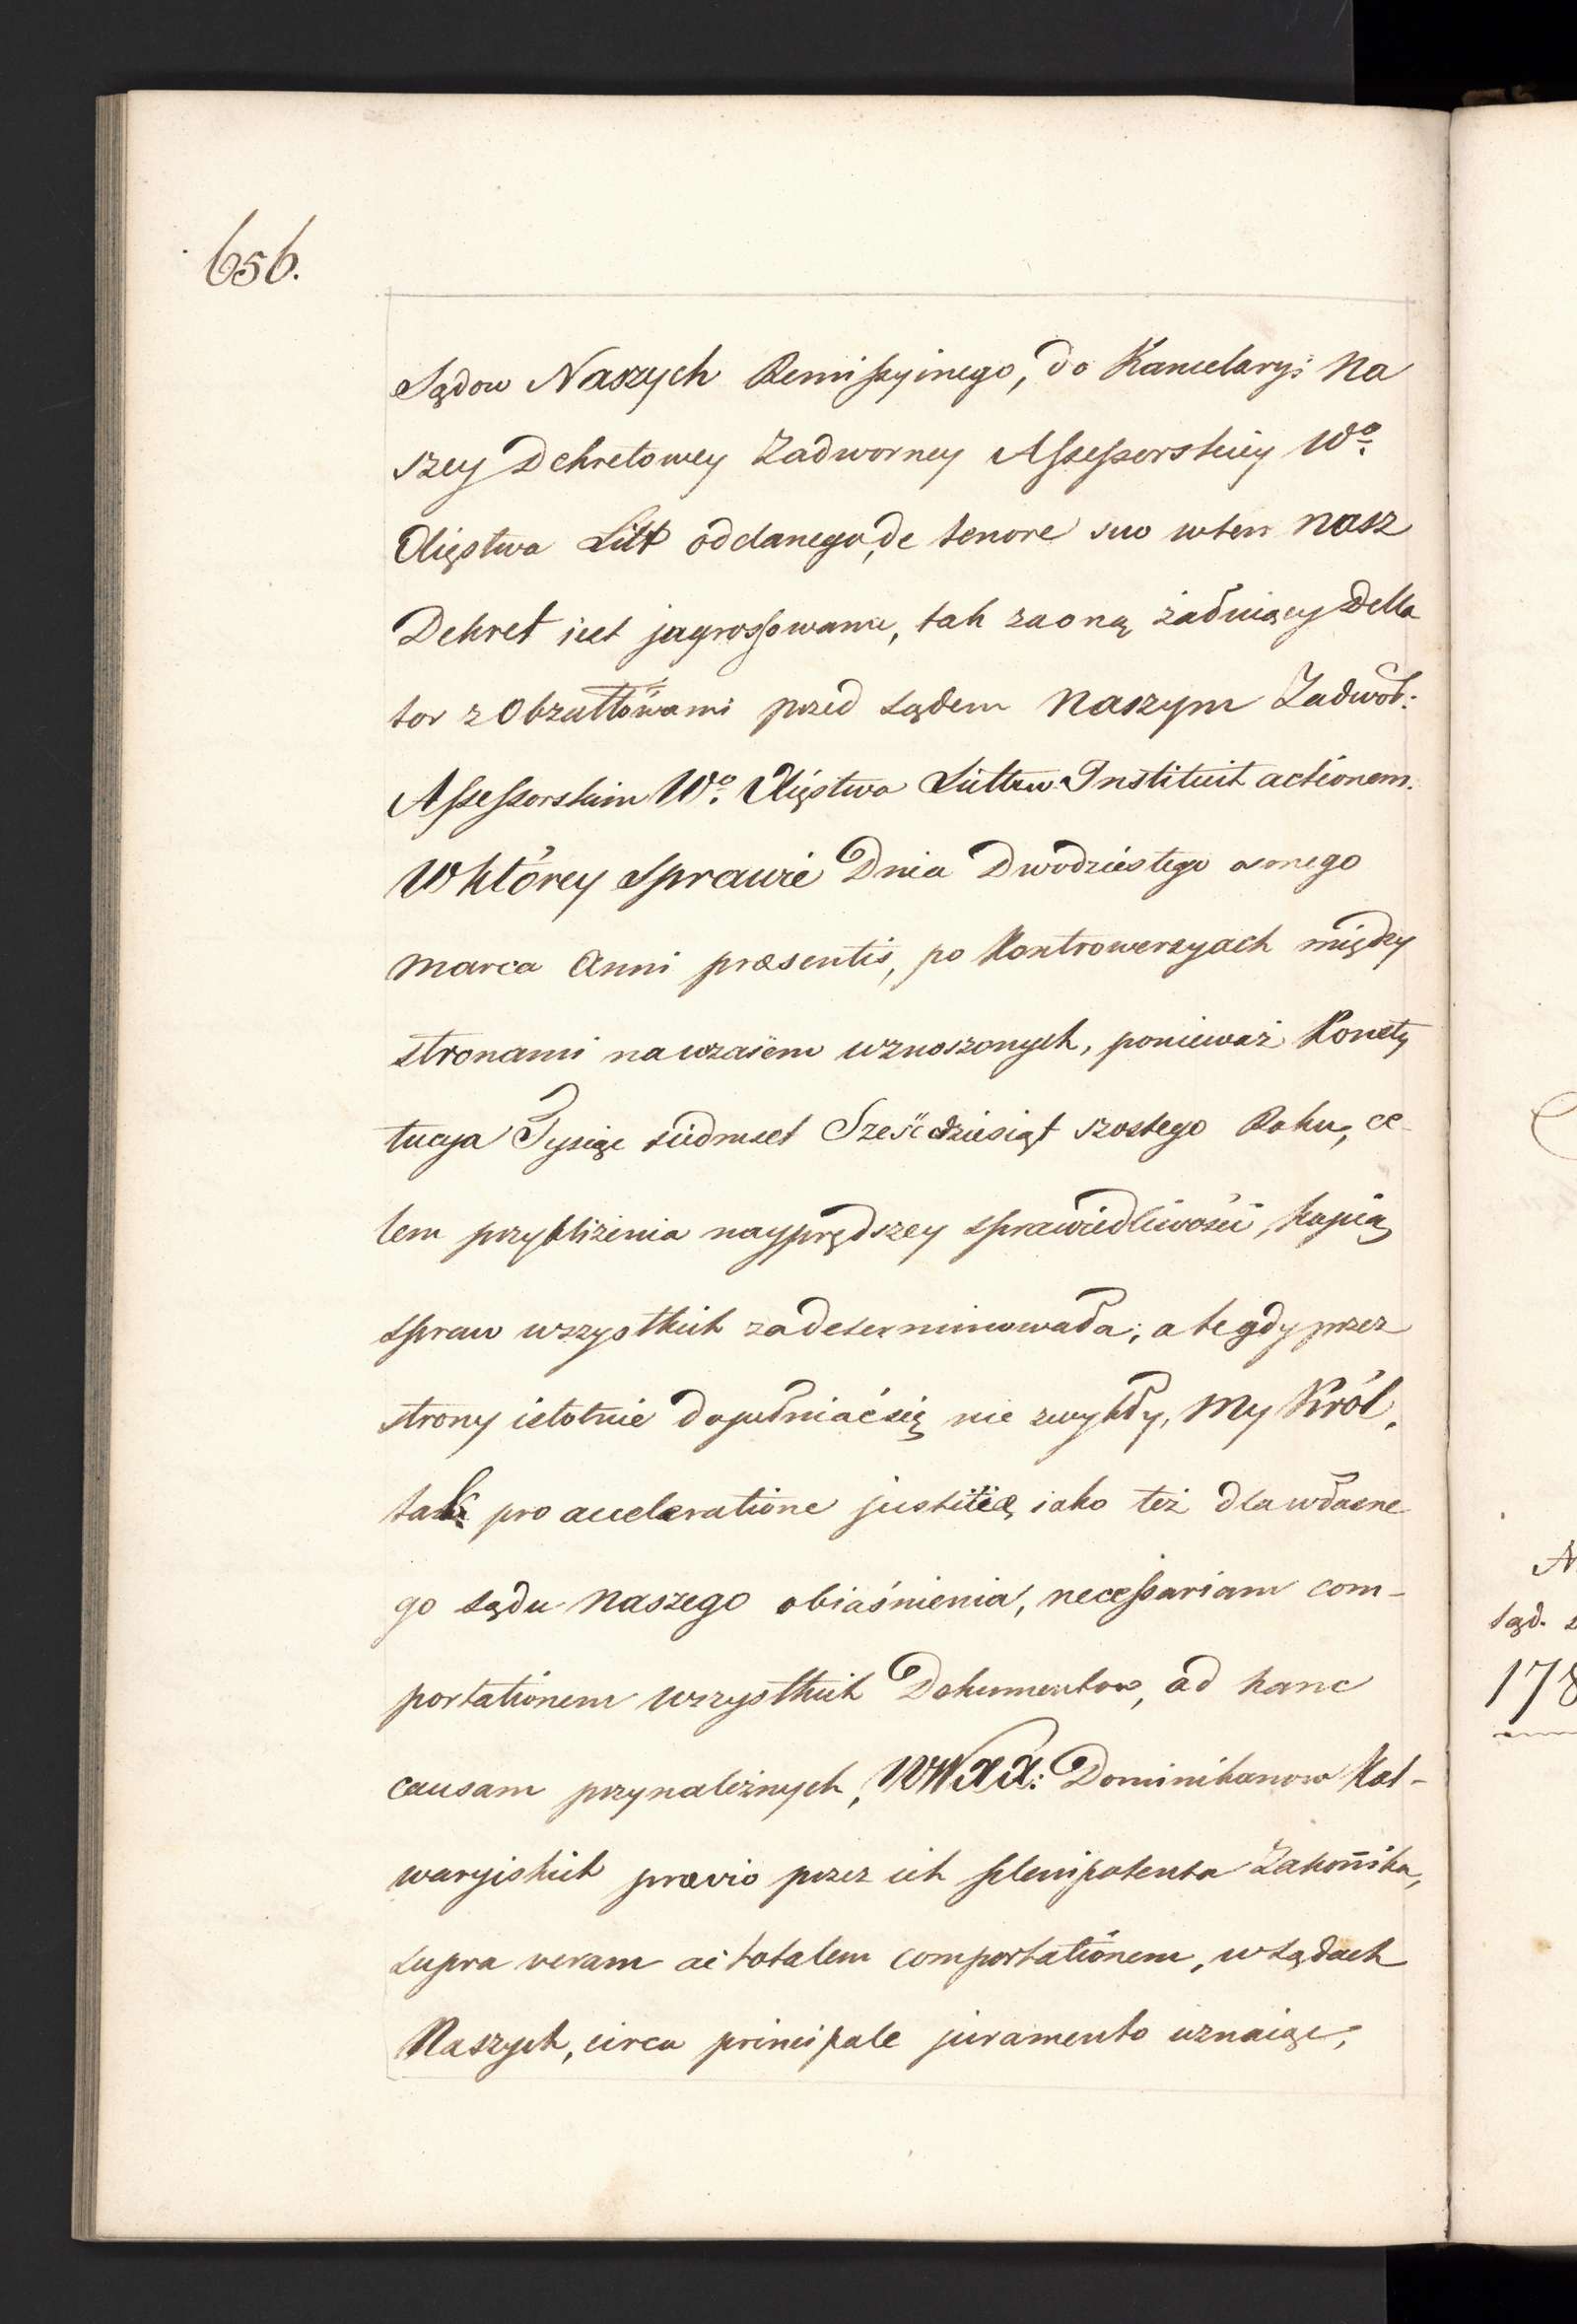 656.
Sądow Naszych Remissyinego, do Kancelaryi Na
szey Dekretowey Zadworney Assessorskiey Wº
Xięstwa Litt oddanego, de tenore suo wten nasz
Dekret iest jngrossowane, tak zaoną żałuiący Della
tor z Obzałłowami przed sądem Naszym Zadwor:
Assessorskim Wº Xięstwa Littew: Instituit actionem.
W którey sprawie Dnia Dwodziestego osmego
Marca Anni præsentis, po Kontrowersyach między
stronami nawzaiem wznoszonych, ponieważ Konsty
tucya Tysiąc siedmset Sześćdziesiąt szostego Roku, ce-
lem przybliżenia nayprędszey sprawiedliwości, kopią
spraw wszystkich zadeterminowała; ale gdy przez
strony istotnie dopełniać się nie zwykły, My Król,
tak pro acceleratione justitiæ, iako też dla własne
go sądu Naszego obiaśnienia, necessariam com-
portationem wszystkich Dokumentow, ad hanc
causam przynależnych, WW XX: Dominikanow Kal-
waryiskich prævio przez ich plenipotenta Zakonnika,
supra veram ac totalem comportationem, w sądach
Naszych, circa principale juramento uznaiąc,
N
sąd.
178